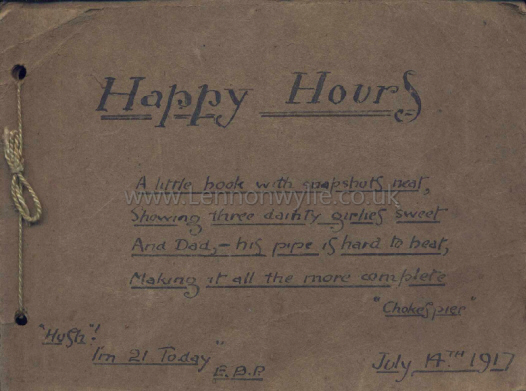 Happy Hours
A little book with snapshots neat,
www.Lennonwylie.co.uk
Showing three dainty girlies sweet
And Dad,- his pipe is hard to beat,
Making it all the more complete
"Chokespier"
"Hush"!
I'm 21 Today"
E.B.P.
July 14.TH 1917